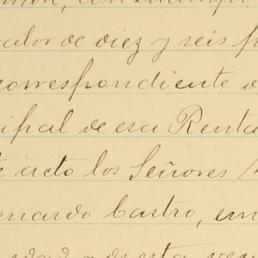 valor de diez y seis
correspondiente
ipal de esa Renta
acto los Señores
nardo Castro, em